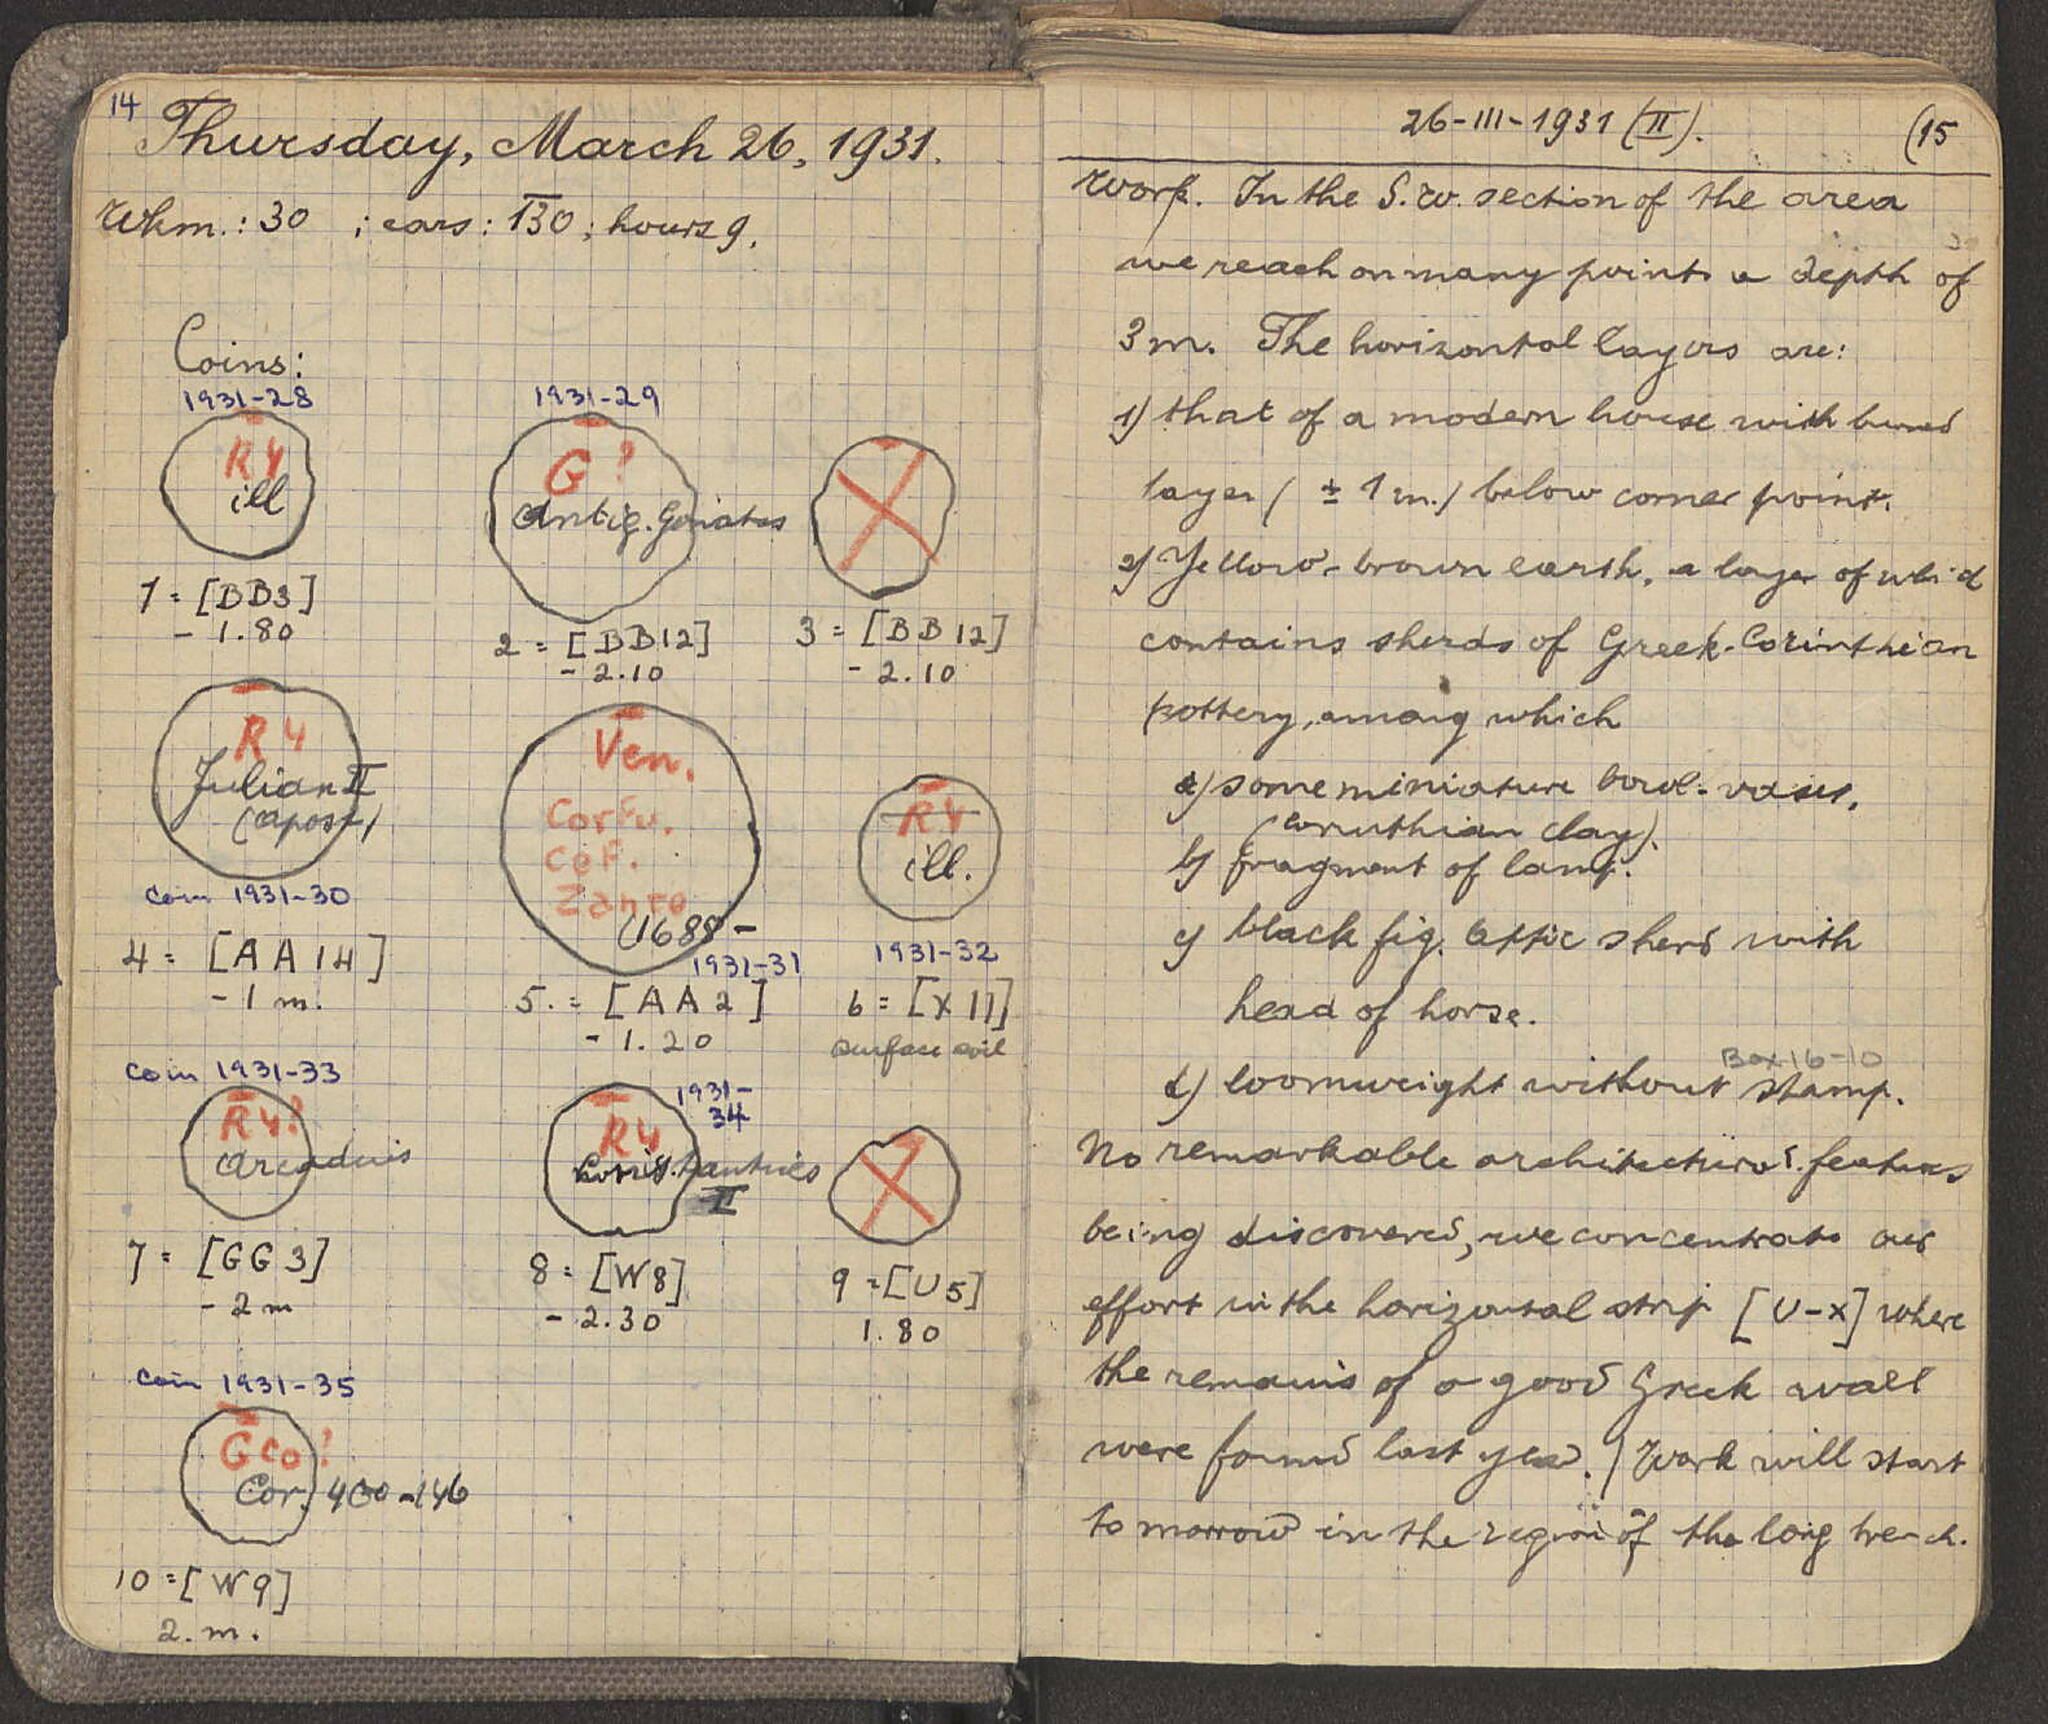 14
Thursday, March 26, 1931.
Wkm.: 30 ; cars: 130 ; hours 9.
Coins:
1931-28
R4
ill
1 = [BB3]
- 1.80
1931-29
G?
Antig. Gonatas
2 = [BB12]
- 2.10
3 = [BB12]
- 2.10
R4
Julian II
(apost)
coin 1931-30
4 = [AA14]
- 1 m.
Ven.
Corfu.
Cef.
Zante
(1688-
1931-31
5. = [AA2]
- 1.20
R4
ill.
1931-32
6 = [X11]
surface soil
coin 1931-33
R4?
Arcadius
7 = [GG3]
- 2 m
1931-
34
R4
Constantius
II
8 = [W8]
- 2.30
9 = [U5]
1.80
coin 1931-35
Gco?
Cor. 400-146
10 = [W9]
2. m.
26-III-1931 (II).
(15
Work. In the S.W. section of the area
we reach on many points a depth of
3 m. The horizontal layers are:
1) that of a modern house with burned
layer (± 1 m.) below corner point.
2) Yellow-brown earth, a layer of which
contains sherds of Greek-Corinthian
pottery, among which
a) some miniature bowl-vases.
(Corinthian clay).
b) fragment of lamp.
c) black fig. Attic sherd with
head of horse.
Box 16-10
d) loomweight without stamp.
No remarkable architectural features
being discovered, we concentrate our
effort in the horizontal strip [U-X] where
the remains of a good Greek wall
were found last year. / Work will start
tomorrow in the region of the long trench.